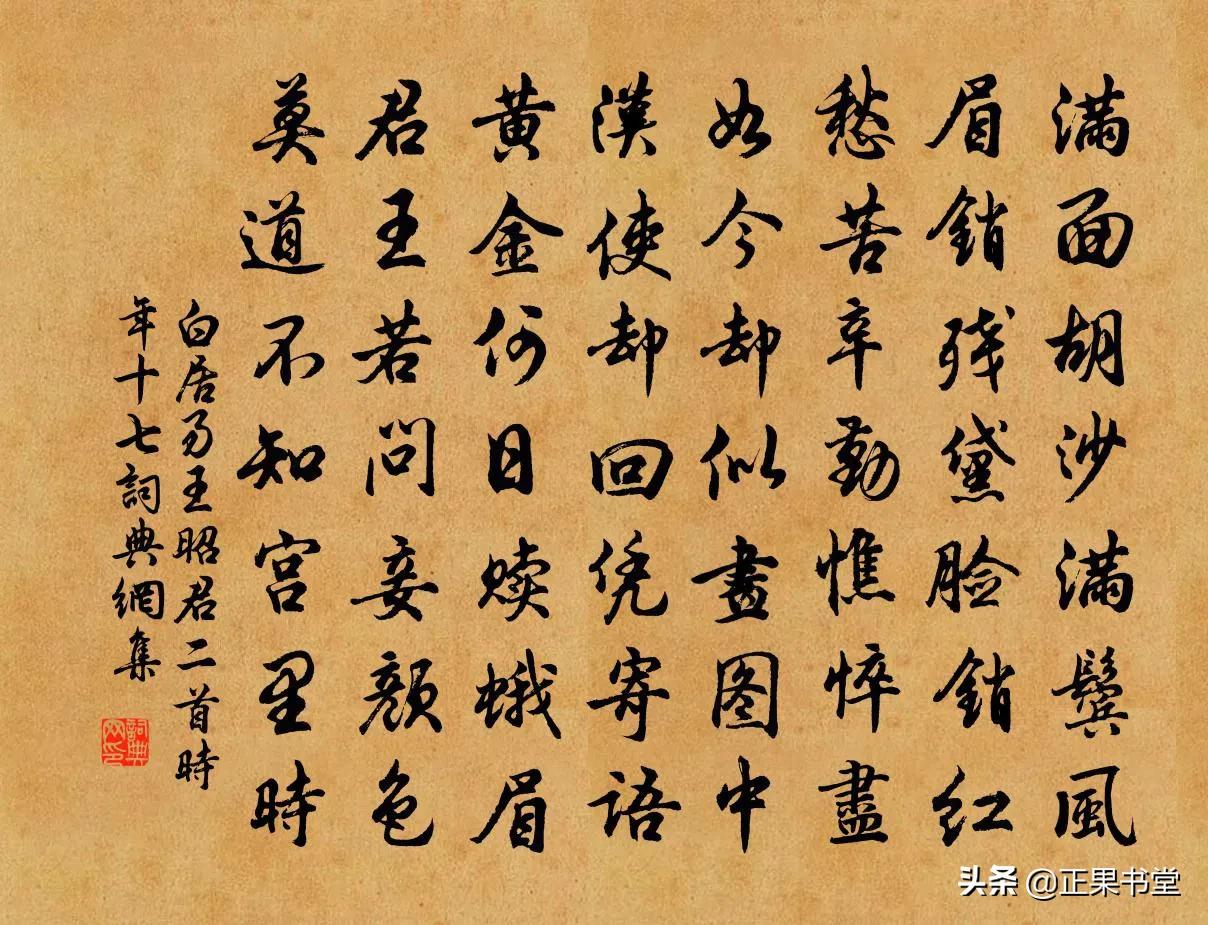 滿面胡沙滿鬓風
眉銷残黛臉銷紅
愁苦辛勤憔悴盡
如今却似畫图中
漢使却回凭寄语
黄金何日赎蛾眉
君王若问妾颜色
莫道不知宫里時
白居易王昭君二首時
年十七詞典網集
詞典网印
头条 @正果书堂